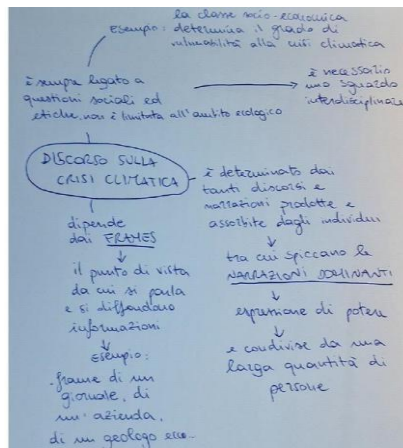 esempio: la classe socio-economica
determina il grado di
vulnerabilità alla crisi climatica
è sempre legato a
questioni sociali ed
etiche, non è limitata all'ambito ecologico
è necessario
uno sguardo
interdisciplinare
DISCORSO SULLA
CRISI CLIMATICA
dipende
dai FRAMES
il punto di vista
da cui si parla
e si diffondono
informazioni
esempio:
frame di un
giornale, di
un'azienda,
di un geologo ecc.
è determinato dai
tanti discorsi e
narrazioni prodotte e
assorbite dagli individui
tra cui spiccano le
NARRAZIONI DOMINANTI
espressione di potere
e condivise da una
larga quantità di
persone